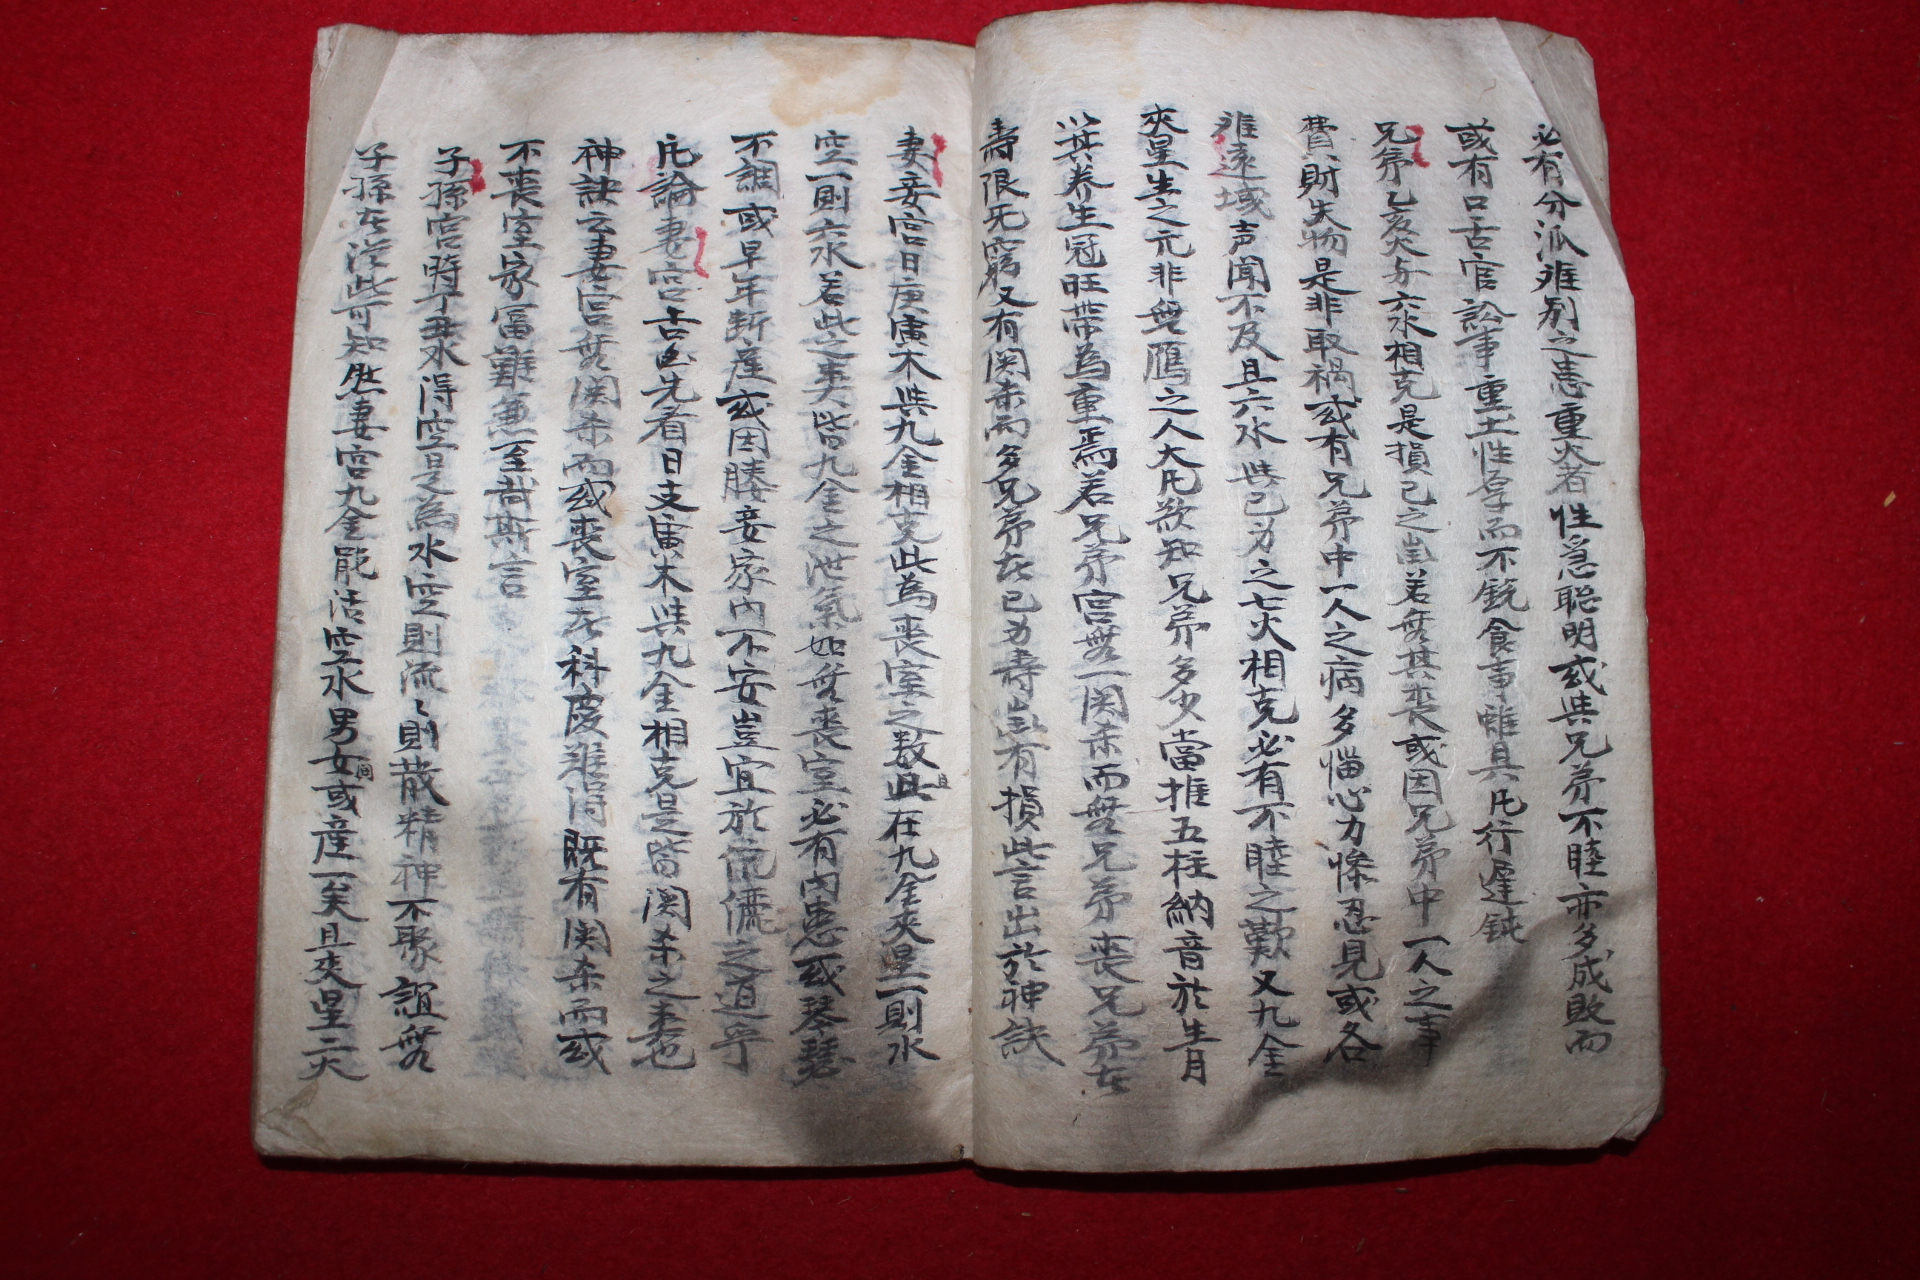 必有分派难别之恚重火者性急聡明或與兄弟不睦亦多成敗而
或有口舌官訟事重土性厚而不銳食事雖具凡行遲鈍
兄弟乙亥火与六水相克是損己之 若無其丧或因兄弟中一人之事
費財失物是非取禍或有兄弟中一人之病多惱心力慘忍見或各
难遠域声聞不及且六水與己身之七火相克必有不睦之歎又九金
夾星生之亢非無鴈之人大凡欲知兄弟多少當推五柱納音於生月
以其养生冠旺帶為重焉若兄弟宮無一関杀而無兄弟丧兄弟在
壽限死窮又有関杀而多兄弟在己身壽豈有損此言出於神訣
妻妾宮日庚寅木與九金相克此為丧室之数且在九金夾星一則水
空一則六水若此之妻皆九金之泄氣如無丧室必有內患或琴瑟
不調或早年断産或因媵妾家內不安豈宜於伉儷之道乎
凡論妻宮吉凶先看日支寅木與九金相克是皆関杀之妻也
神訣云妻宮無関杀而或丧室在科慶难得既有関杀而或
不丧室家富難兼至哉斯言
子孫宮時丁丑水得空是為水空則流〻則散精神不聚 無
子孫在 此可知然妻宮九金能活空水男女間或産一矣且夾星二火